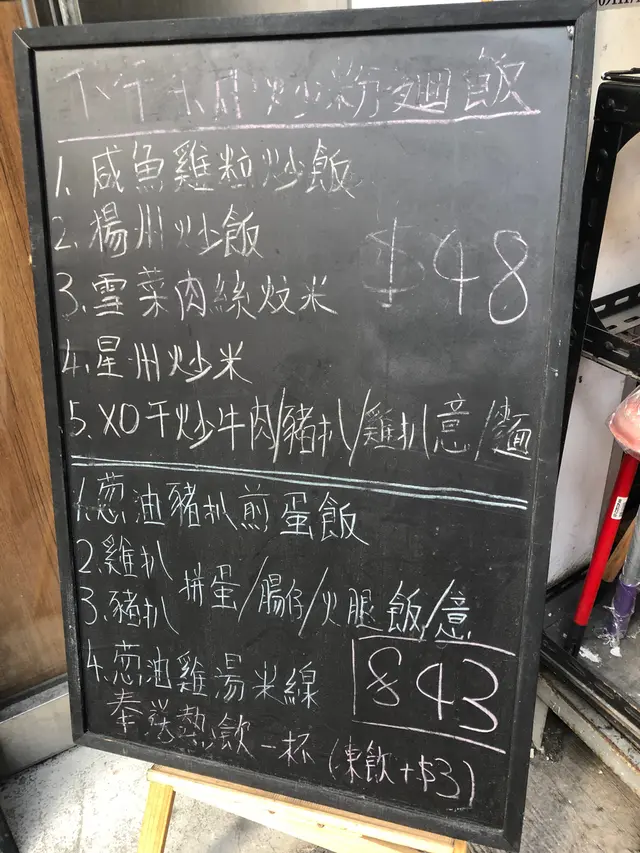 下午未月炒粉麵飯
1. 咸魚雞粒炒飯
2. 揚州炒飯
$48
3. 雪菜肉絲炆米
4. 星州炒米
5. XO干炒牛肉/豬扒/雞扒意/麵
1. 葱油豬扒煎蛋飯
2. 雞扒
3. 豬扒
拼蛋/腸仔/火腿 飯/意
4. 葱油雞湯米線
$43
奉送熱飲一杯 (凍飲+$3)